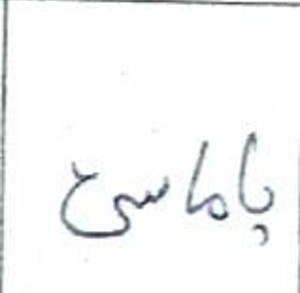 پاماسی